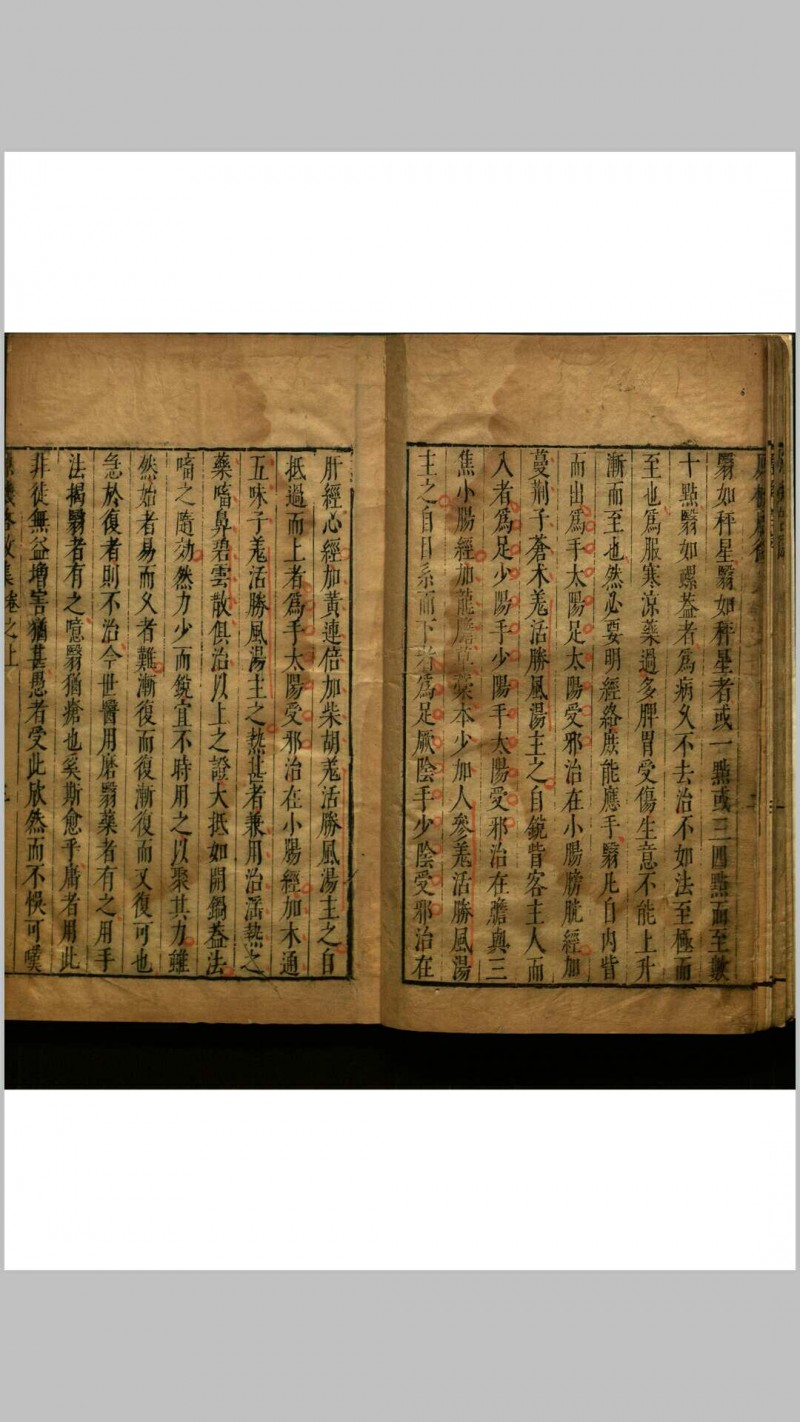 翳如秤星翳如秤星者或一點或三四點而至數
十點翳如螺葢者為病久不去治不如法至極而
至也爲服寒涼藥過多脾胃受傷生意不能上升
漸而至也然必要明經絡庶能應手翳凡自内眥
而出爲手太陽足太陽受邪治在小腸膀胱經加
蔓荆子蒼术羌活勝風湯主之自銳眥客主人而
入者爲足少陽手少陽手太陽受邪治在膽與三
焦小腸經加龍膽草藁本少加人參羌活勝風湯
主之自目系而下者爲足厥陰手少陰受邪治在
肝經心經加黃連倍加柴胡羌活勝風湯主之自
抵過而上者爲手太陽受邪治在小腸經加木通
五味子羌活勝風湯主之熱甚者兼用治淫熱之
藥㗜鼻碧雲散俱治以上之證大抵如開鍋葢法
㗜之隨効然力少而銳宜不時用之以聚其力雖
然始者易而乆者難漸復而復漸復而又復可也
急於復者則不治今世醫用磨翳藥者有之用手
法揭翳者有之噫翳猶瘡也奚斯愈乎庸者用此
非徒無益增害猶甚愚者受此欣然而不悞可嘆
卷之上